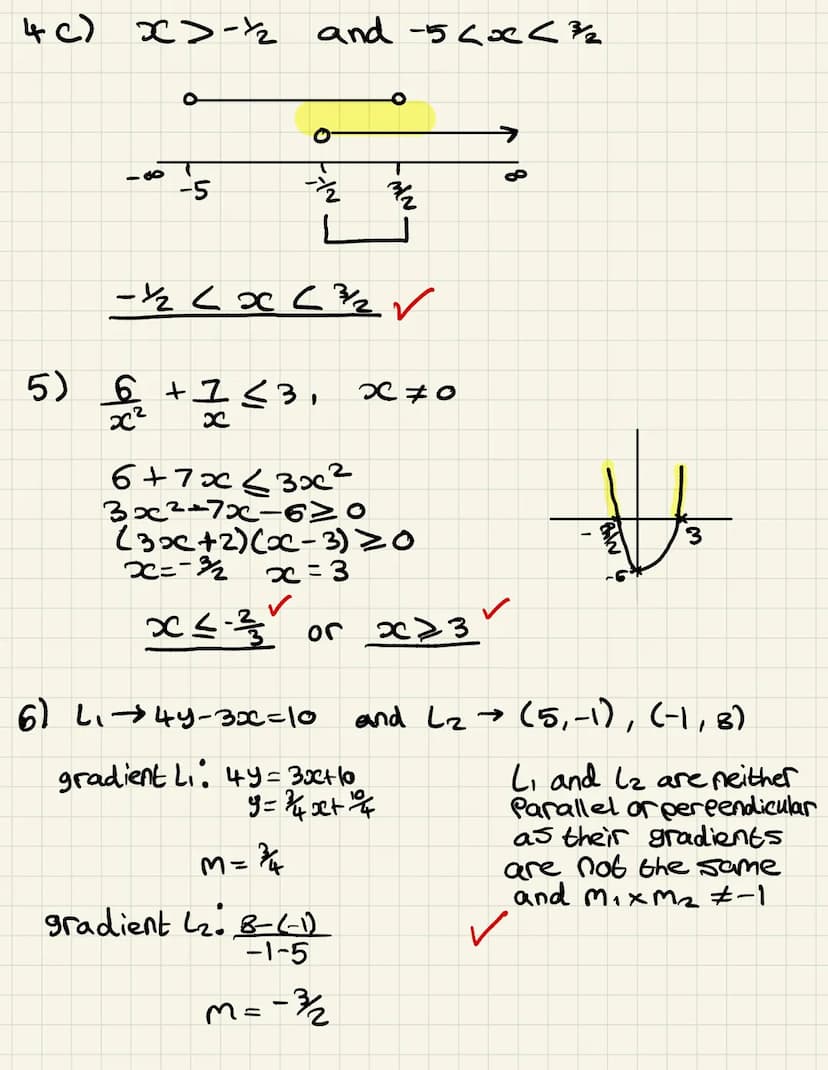 4c) x > -1/2 and -5 < x < 3/2
-∞ -5 -1/2 3/2 ∞
-1/2 < x < 3/2 ✓
5) 6/x² + 7/x ≤ 3, x ≠ 0
6 + 7x ≤ 3x²
3x² - 7x - 6 ≥ 0
(3x + 2)(x - 3) ≥ 0
x = -3/2 x = 3
-3/2 3
-6
x ≤ -2/3 ✓ or x ≥ 3 ✓
6) L₁ → 4y - 3x = 10 and L₂ → (5, -1), (-1, 8)
gradient L₁: 4y = 3x + 10
y = 3/4 x + 10/4
m = 3/4
gradient L₂: 8-(-1)/-1-5
m = -3/2
L₁ and L₂ are neither
Parallel or perpendicular
as their gradients
are not the same
and m₁ x m₂ ≠ -1
✓